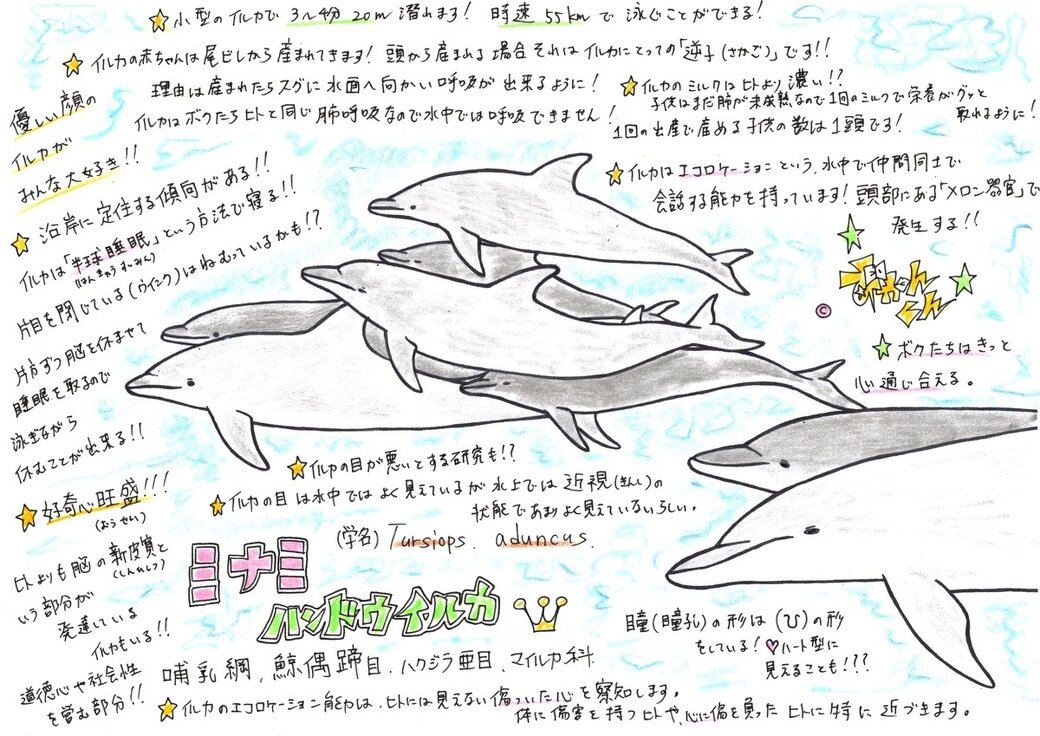 ☆小型のイルカで3〜4分20m潜れます! 時速55kmで泳ぐことができる!
☆イルカの赤ちゃんは尾ビレから産まれてきます! 頭から産まれる場合それはイルカにとっての「逆子(さかご)」です!!
理由は産まれたらスグに水面へ向かい呼吸が出来るように!
イルカはボクたちヒトと同じ肺呼吸なので水中では呼吸できません!
☆イルカのミルクはヒトより濃い!?
子供はまだ肺が未成熟なので1回のミルクで栄養がグッと
取れるように!
1回の出産で産める子供の数は1頭です!
優しい顔の
イルカが
みんな大好き!!
☆イルカはエコロケーションという、水中で仲間同士で
会話する能力を持っています!頭部にある「メロン器官」で
発生する!!
☆沿岸に定住する傾向がある!!
イルカは「半球睡眠」という方法で寝る!!
(はんきゅうすいみん)
片目を閉じている(ウインク)はねむっているかも!?
片方ずつ脳を休ませて
睡眠を取るので
泳ぎながら
休むことが出来る!!
©
くん
☆ボクたちはきっと
心通じ合える。
☆イルカの目が悪いとする研究も!?
☆イルカの目は水中ではよく見えているが水上では近視(きんし)の
状態であまりよく見えていないらしい。
☆好奇心旺盛!!!
(おうせい)
ヒトよりも脳の新皮質と
(しんひしつ)
いう部分が
発達している
イルカもいる!!
道徳心や社会性
を営む部分!!
(学名) Tursiops. aduncus.
ミナミ
ハンドウイルカ
哺乳綱, 鯨偶蹄目, ハクジラ亜目, マイルカ科
瞳(瞳孔)の形は(ひ)の形
をしている!♡ハート型に
見えることも!??
☆イルカのエコロケーション能力は、ヒトには見えない傷ついた心を察知します。
体に傷害を持つヒトや、心に傷を負ったヒトに特に近づきます。